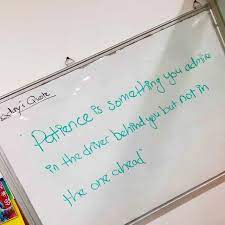 Today's Quote
"Patience is something you admire
in the driver behind you but not in
the one ahead"